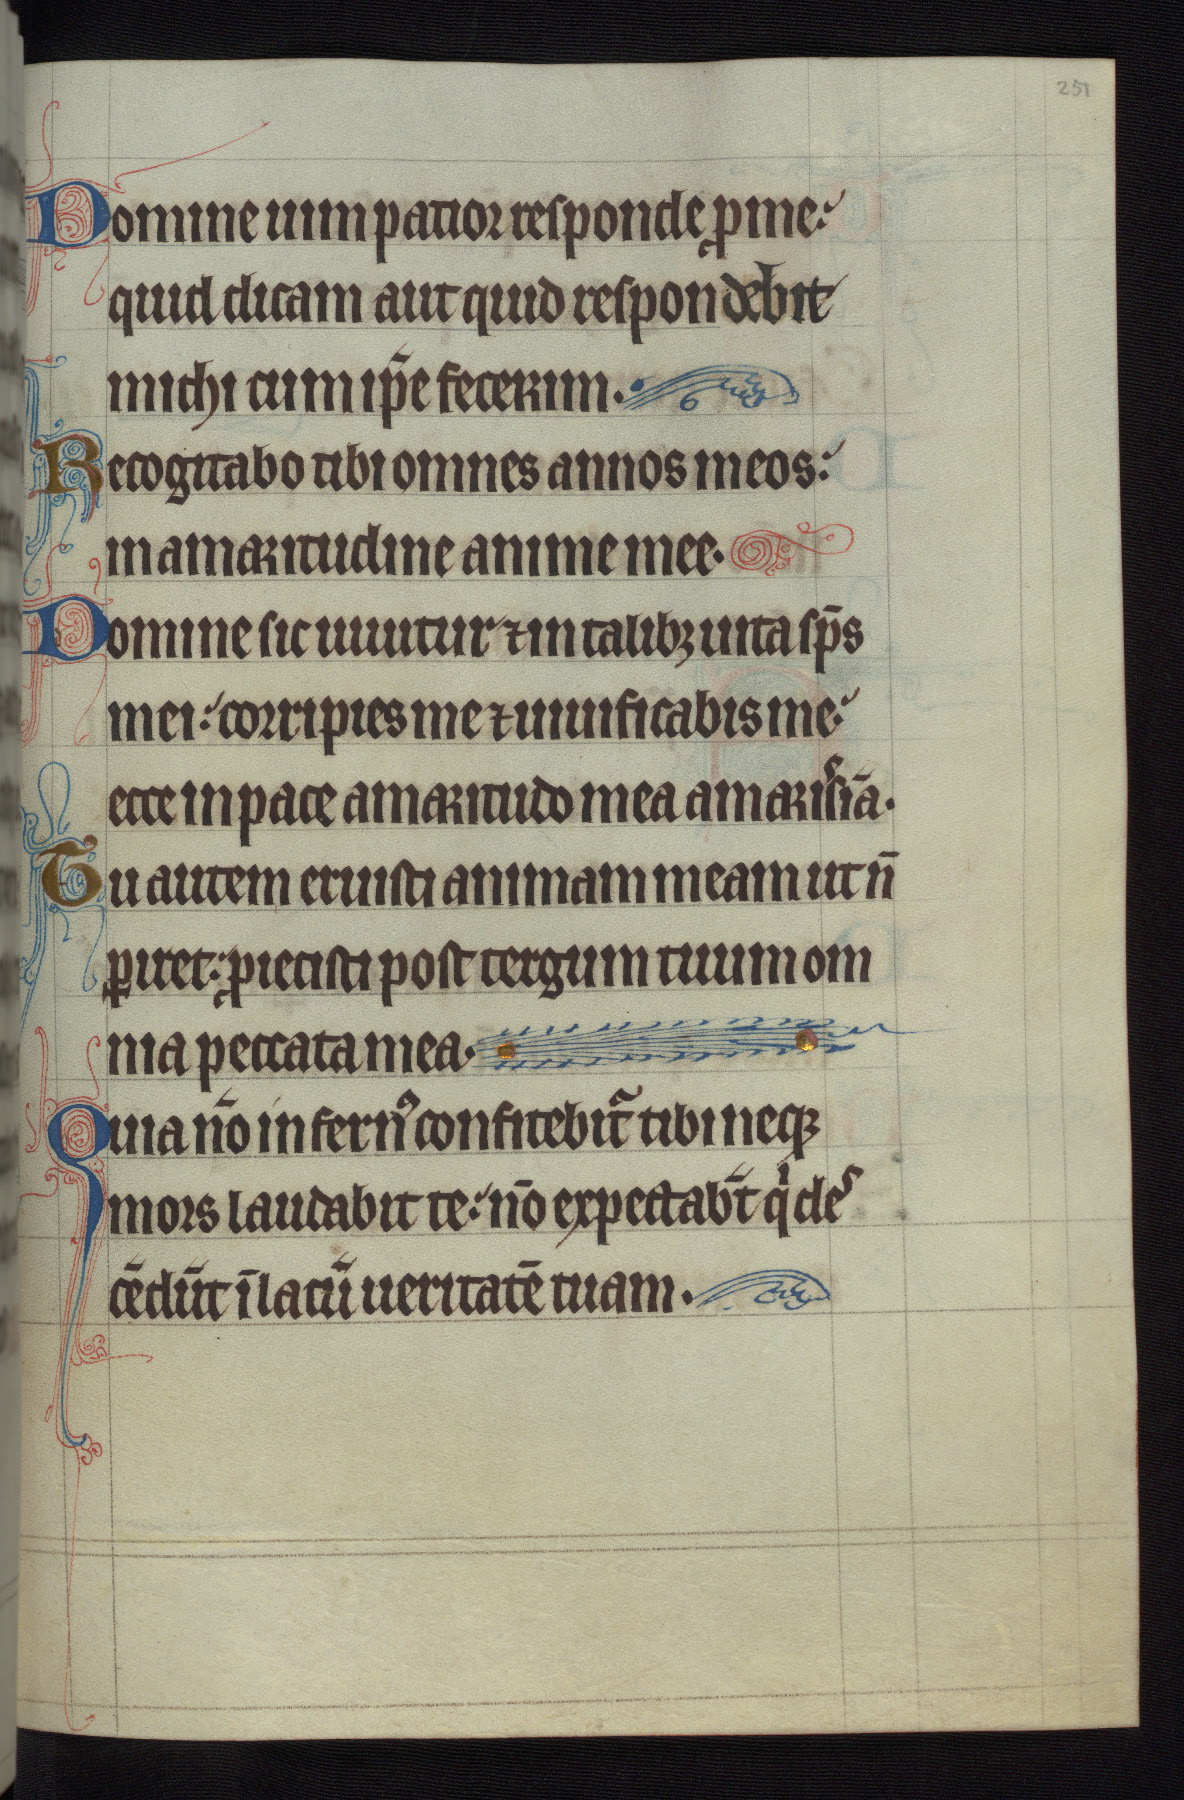 251
Domine uim patior responde ꝓ me:
quid dicam aut quid respondebit
michi cum ip̄e fecerim.
Recogitabo tibi omnes annos meos:
in amaritudine anime mee.
Domine sic uiuitur ⁊ in talibꝫ uita sp̄s
mei: corripies me ⁊ uiuificabis me:
ecce in pace amaritudo mea amarisſiā.
Tu autem eruisti animam meam ut n̄
ꝑiret: ꝓiecisti post tergum tuum om
nia peccata mea.
Quia n̄o infernꝰ confitebit᷑ tibi neqꝫ
mors laudabit te: n̄o expectab̄t qͥ deſ
cēdūt ī lacū ueritatē tuam.